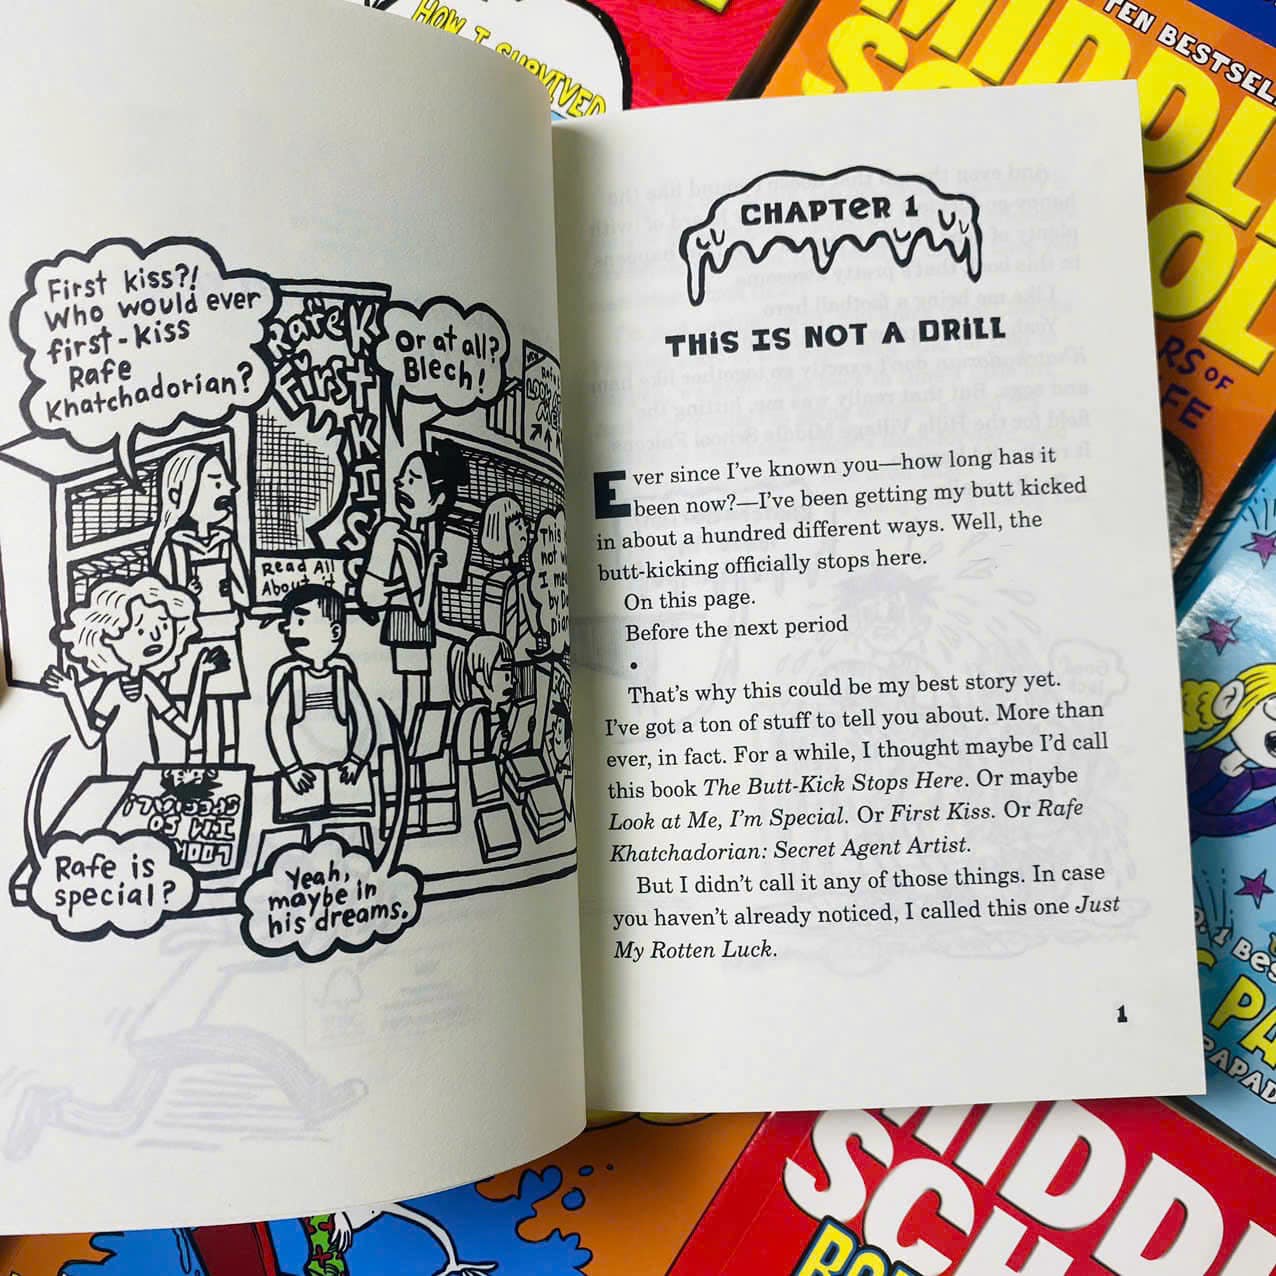 HOW I SURVIVED
TEN BESTSEL
MIDDL
First kiss?!
Who would ever
first-kiss
Rafe
Khatchadorian?
Or at all?
Blech!
Rafe K
First
KISS
Read All
About it
This
not
I me
by
Dia
LOOK
I'M SO
SPECIAL!
Rafe is
special?
Yeah,
maybe in
his dreams.
CHAPTER 1
THIS IS NOT A DRILL
Ever since I've known you—how long has it
been now?—I've been getting my butt kicked
in about a hundred different ways. Well, the
butt-kicking officially stops here.
On this page.
Before the next period
.
That's why this could be my best story yet.
I've got a ton of stuff to tell you about. More than
ever, in fact. For a while, I thought maybe I'd call
this book The Butt-Kick Stops Here. Or maybe
Look at Me, I'm Special. Or First Kiss. Or Rafe
Khatchadorian: Secret Agent Artist.
But I didn't call it any of those things. In case
you haven't already noticed, I called this one Just
My Rotten Luck.
1
RS OF
FE
PA
PAPAD
MIDD
SCH